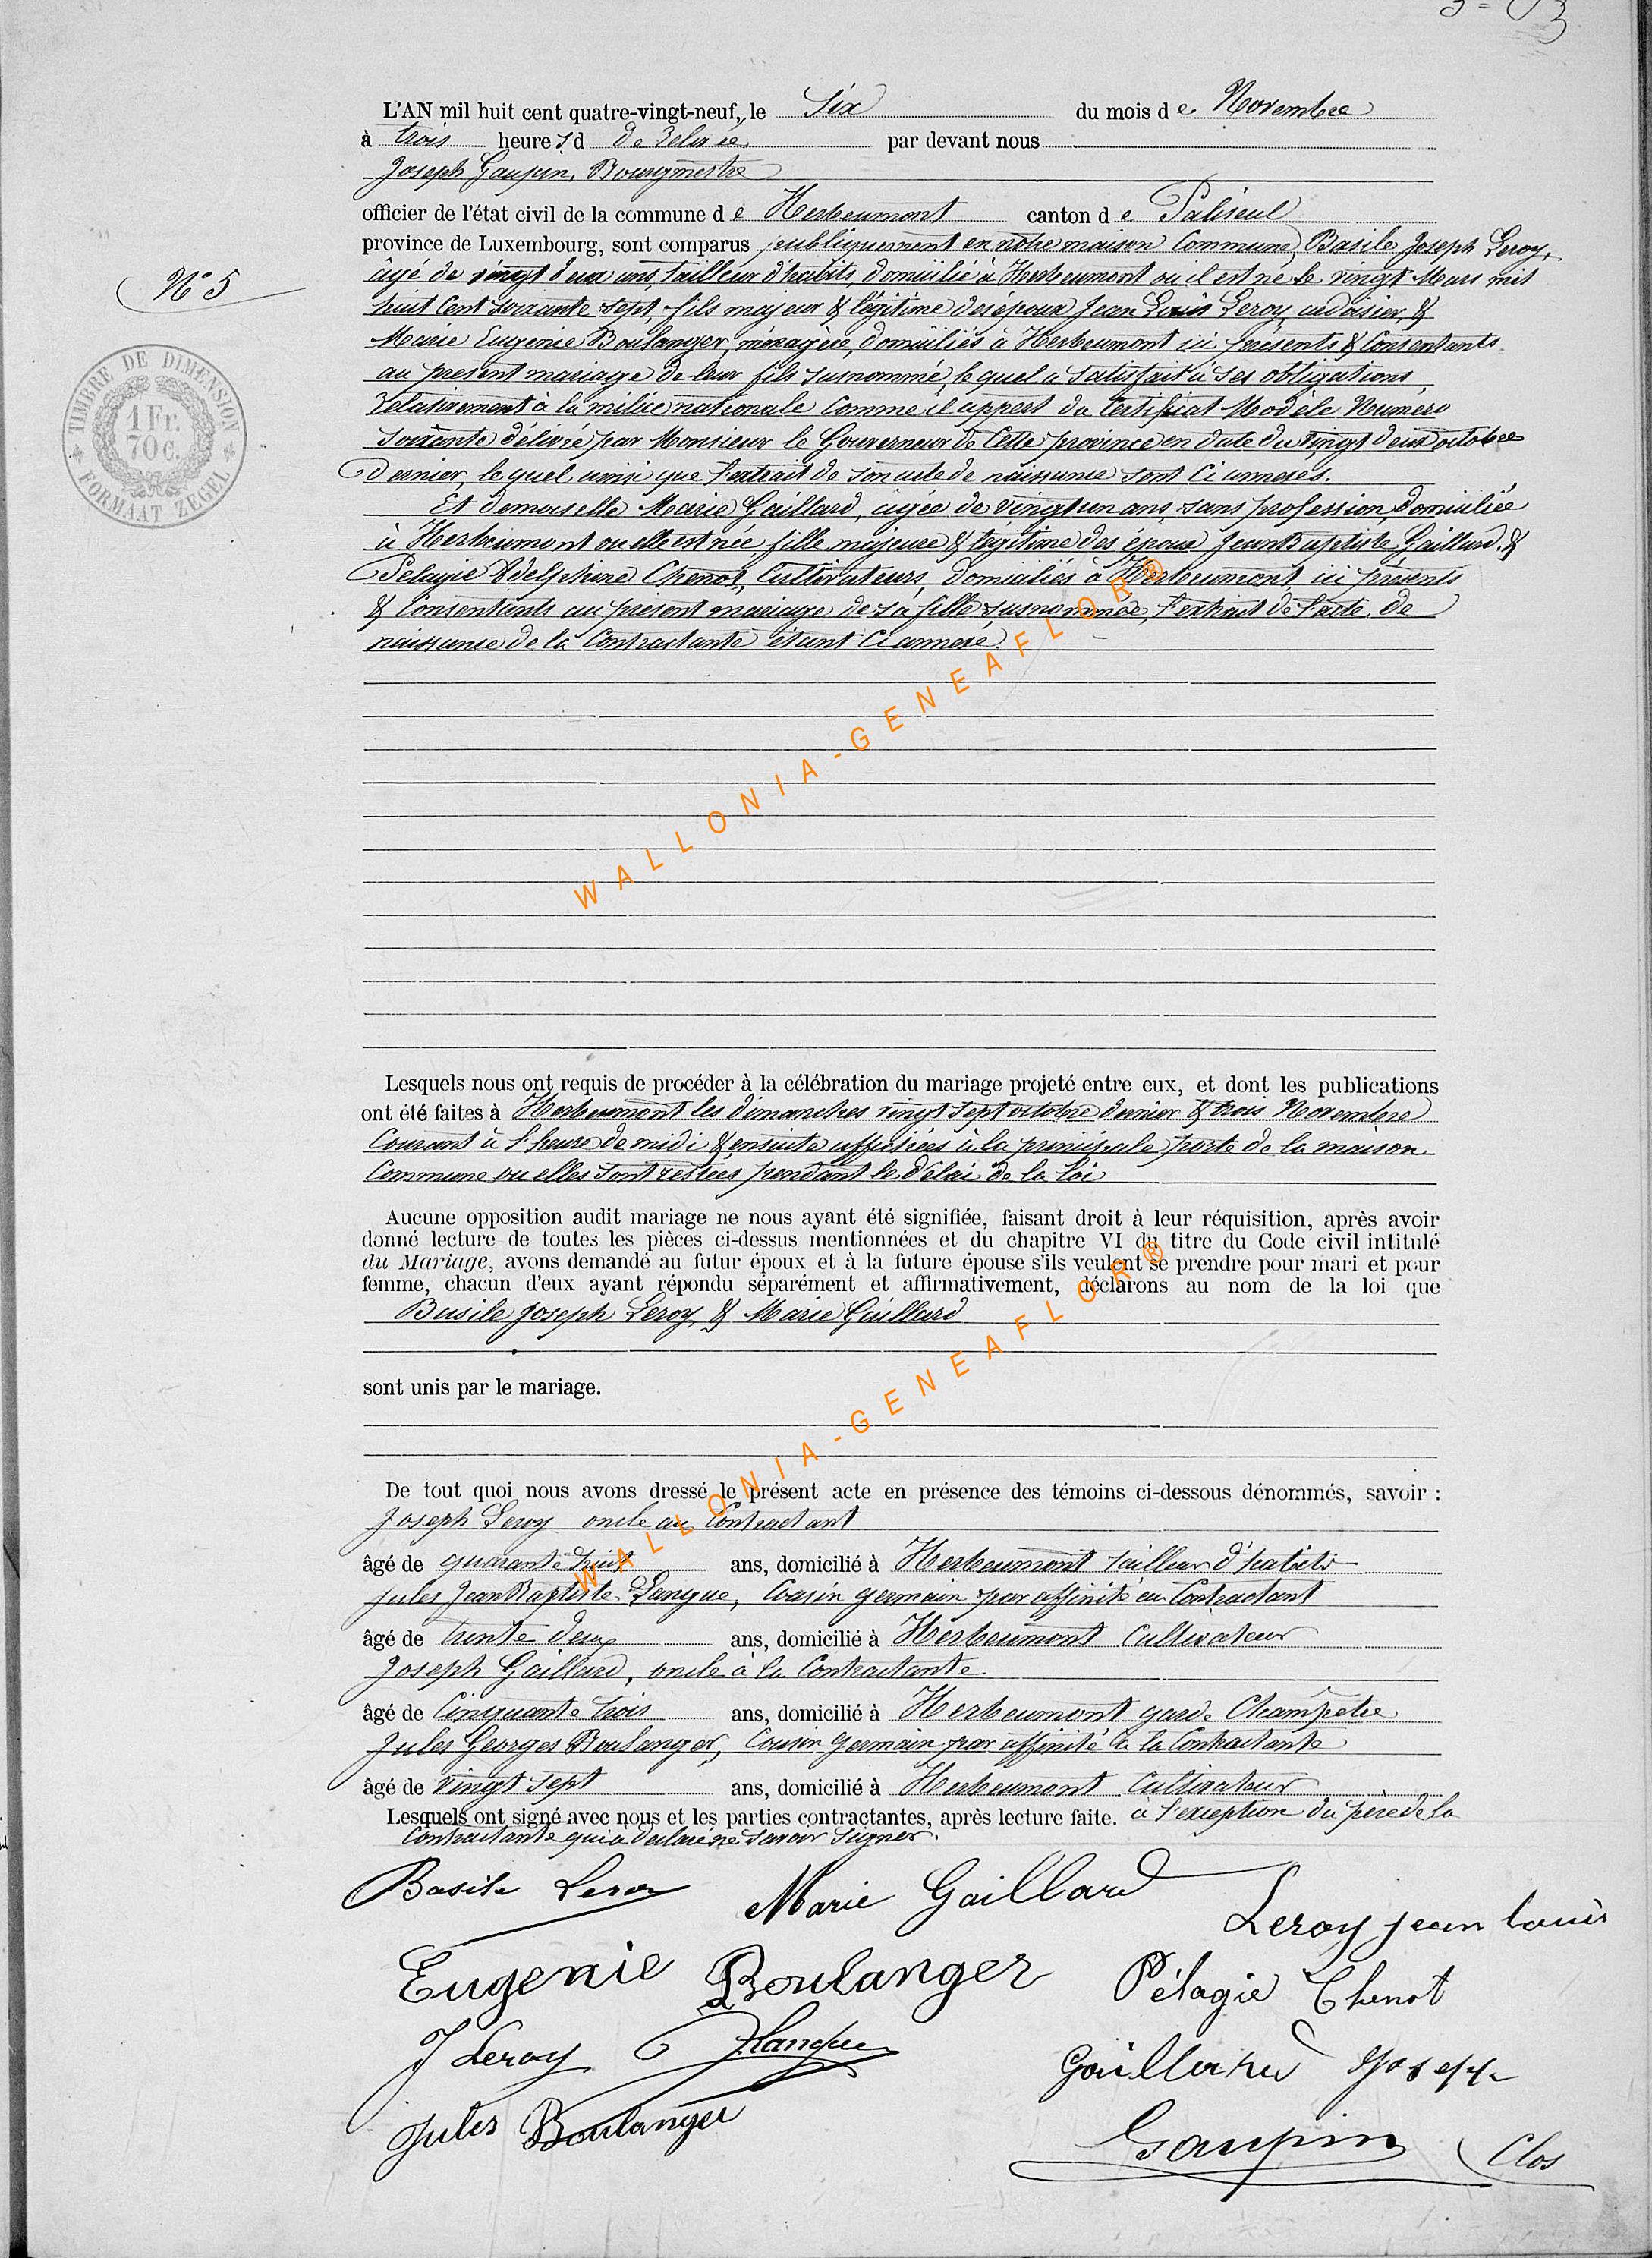 L'AN mil huit cent quatre-vingt-neuf, le Six du mois de Novembre
à trois heures d de relevée, par devant nous
Joseph Gaupin, Bourgmestre
officier de l'état civil de la commune de Herbeumont canton de Paliseul
province de Luxembourg, sont comparus publiquement en notre maison Commune, Basile Joseph Leroy,
âgé de vingt deux ans, tailleur d'habits, domicilié à Herbeumont où il est né le vingt Mars mil
huit Cent soixante sept, fils majeur & légitime des époux Jean Louis Leroy, ardoisier, &
Marie Eugénie Boulanger, ménagère, domiciliés à Herbeumont ici présents & Consentants
au présent mariage de leur fils susnommé, lequel a satisfait à ses obligations,
relativement à la milice nationale Comme il appert du Certificat Modèle Numéro
soixante délivré par Monsieur le Gouverneur de Cette province en date du vingt deux octobre
dernier, lequel ainsi que l'extrait de son acte de naissance sont Ci annexés.
Et demoiselle Marie Gaillard, âgée de vingt un ans, sans profession, domiciliée
à Herbeumont ou elle est née, fille majeure & légitime des époux Jean Baptiste Gaillard, &
Pelagie Adelphine Chenot, Cultivateurs, domiciliés à Herbeumont, ici présents
& Consentants au présent mariage de sa fille susnommée, l'extrait de l'acte de
naissance de la Contractante étant Ci annexé.
N° 5
TIMBRE DE DIMENSION
1 Fr.
70 c.
FORMAAT ZEGEL
WALLONIA-GENEAFLOR®
Lesquels nous ont requis de procéder à la célébration du mariage projeté entre eux, et dont les publications
ont été faites à Herbeumont les dimanches vingt sept octobre dernier & trois Novembre
Courant à l'heure de midi & ensuite affichées à la principale porte de la maison
Commune ou elles sont restées pendant le délai de la loi
Aucune opposition audit mariage ne nous ayant été signifiée, faisant droit à leur réquisition, après avoir
donné lecture de toutes les pièces ci-dessus mentionnées et du chapitre VI du titre du Code civil intitulé
du Mariage, avons demandé au futur époux et à la future épouse s'ils veulent se prendre pour mari et pour
femme, chacun d'eux ayant répondu séparément et affirmativement, déclarons au nom de la loi que
Basile Joseph Leroy, & Marie Gaillard
sont unis par le mariage.
WALLONIA-GENEAFLOR®
De tout quoi nous avons dressé le présent acte en présence des témoins ci-dessous dénommés, savoir :
Joseph Leroy oncle au Contractant
âgé de quarante huit ans, domicilié à Herbeumont tailleur d'habits
Jules Jean Baptiste Langue, Cousin germain par affinité au Contractant
âgé de trente deux ans, domicilié à Herbeumont Cultivateur
Joseph Gaillard, oncle à la Contractante.
âgé de Cinquante trois ans, domicilié à Herbeumont garde Champêtre
Jules Georges Boulanger, Cousin Germain par affinité à la Contractante
âgé de vingt sept ans, domicilié à Herbeumont Cultivateur
Lesquels ont signé avec nous et les parties contractantes, après lecture faite. à l'exception du père de la
Contractante qui a déclaré ne savoir signer.
Basile Leroy Marie Gaillard
Leroy jean louis
Eugenie Boulanger Pélagie Chenot
J Leroy JLangue
Gaillard Joseph
Jules Boulanger
Gaupin Clos